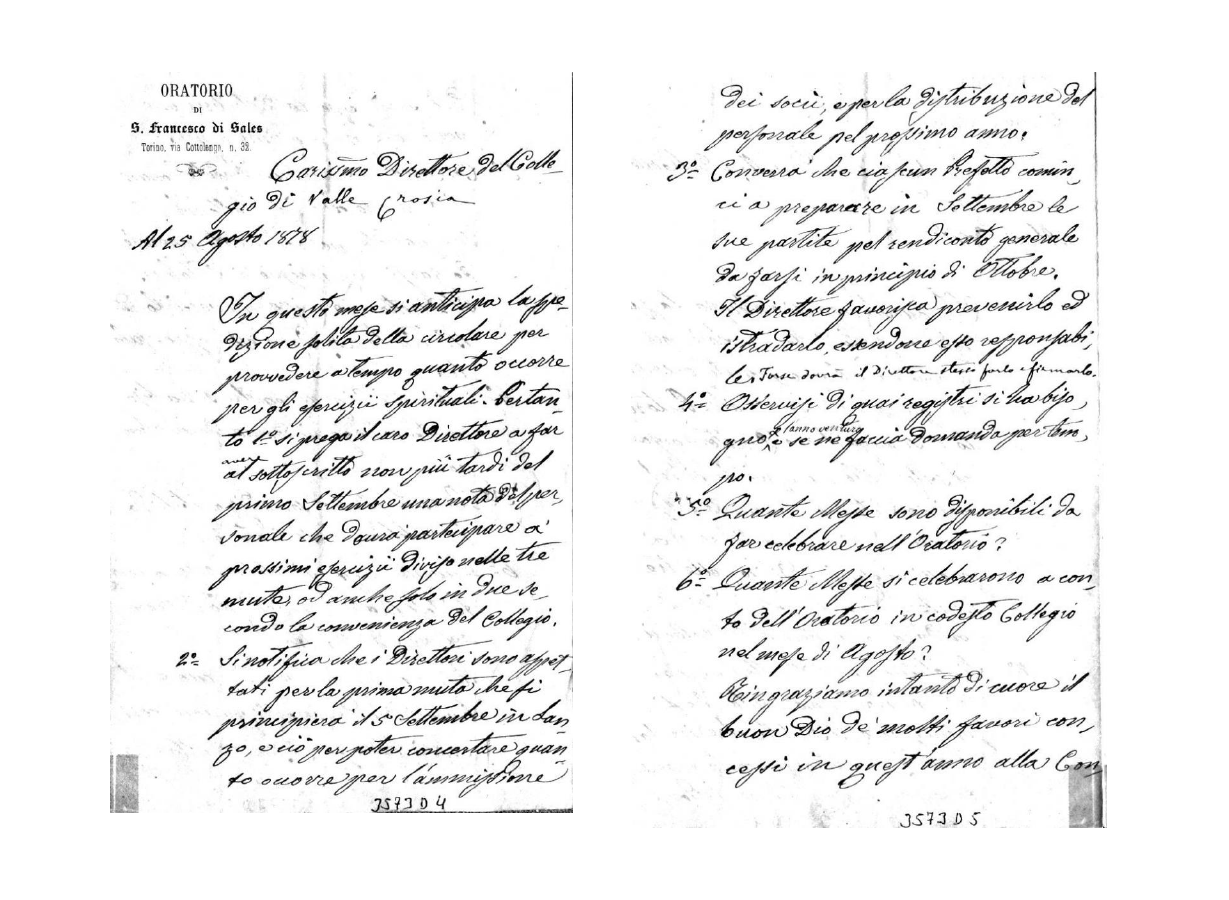 ORATORIO
DI
S. Francesco di Sales
Torino, via Cottolengo, n. 32.
Carissimo Direttore del Colle-
gio di Valle Crosia
Al 25 Agosto 1878
In questo mese si anticipa la spe-
dizione solita della circolare per
provvedere a tempo quanto occorre
per gli esercizii spirituali. Pertan-
to 1º si prega il caro Direttore a far
aver
al sottoscritto non più tardi del
primo Settembre una nota del per-
sonale che dovrà partecipare a'
prossimi esercizii diviso nelle tre
mute, od anche solo in due se-
condo la convenienza del Collegio.
2º Si notifica che i Direttori sono aspet-
tati per la prima muta che si
principierà il 5 Settembre in Lan-
zo, e ciò per poter concertare quan-
to occorre per l'ammissione
3573 D 4
dei socii, e per la distribuzione del
personale pel prossimo anno.
3º Converrà che ciascun Prefetto comin-
ci a preparare in Settembre le
sue partite pel rendiconto generale
da farsi in principio di Ottobre.
Il Direttore favorisca prevenirlo ed
istradarlo, essendone esso responsabi-
le. Forse dovrà il Direttore stesso farlo e firmarlo.
4º Osservisi di quai registri si ha biso-
l'anno venturo
gno e se ne faccia domanda per tem-
po.
5º Quante Messe sono disponibili da
far celebrare nell'Oratorio?
6º Quante Messe si celebrarono a con-
to dell'Oratorio in codesto Collegio
nel mese di Agosto?
Ringraziamo intanto di cuore il
buon Dio de' molti favori con-
cessi in quest'anno alla Con-
3573 D 5